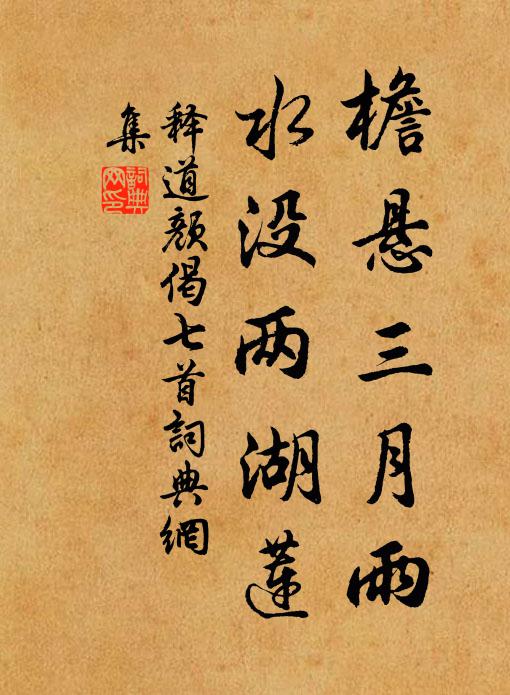 檐悬三月雨
水没两湖莲
释道颜偈七首詞典網
集
詞典網印